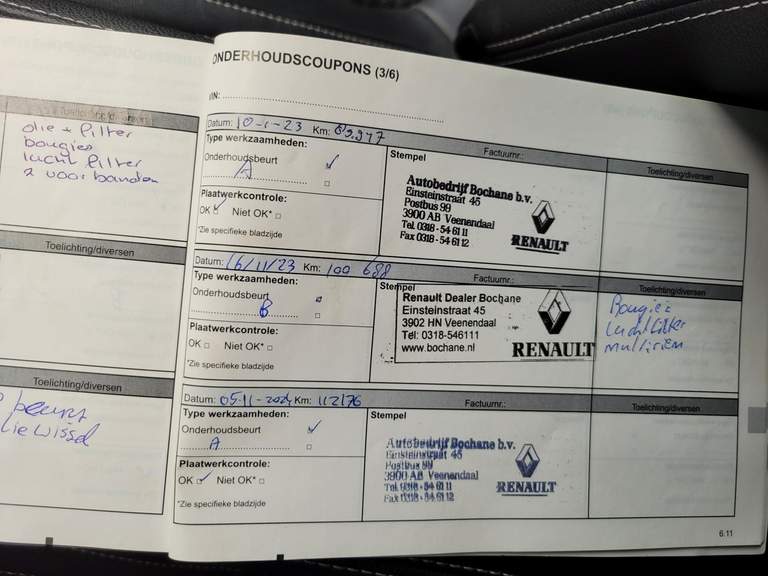 Toelichting/diversen
olie + filter
bougies
lucht filter
2 voorbanden
Toelichting/diversen
Toelichting/diversen
beurt
ONDERHOUDSCOUPONS (3/6)
VIN:
Datum: 10-1-23 Km:
Type werkzaamheden:
Onderhoudsbeurt
A
Plaatwerkcontrole:
OK Niet OK*
*Zie specifieke bladzijde
Stempel Factuurnr.:
Autobedrijf Bochane b.v.
Einsteinstraat 45
Postbus 99
3900 AB Veenendaal
Tel. 0318 - 54 61 11
Fax 0318 - 54 61 12
RENAULT
Toelichting/diversen
Datum: 16/11/23 Km: 100 688
Type werkzaamheden:
Onderhoudsbeurt
B
Plaatwerkcontrole:
OK Niet OK*
*Zie specifieke bladzijde
Stempel Factuurnr.:
Renault Dealer Bochane
Einsteinstraat 45
3902 HN Veenendaal
Tel: 0318-546111
www.bochane.nl
RENAULT
Toelichting/diversen
Bougies
Luchtfilter
multiriem
Datum: 05-11-2024 Km: 112176
Type werkzaamheden:
Onderhoudsbeurt
A
Plaatwerkcontrole:
OK Niet OK*
*Zie specifieke bladzijde
Stempel Factuurnr.:
Autobedrijf Bochane b.v.
Einsteinstraat 45
Postbus 99
3900 AB Veenendaal
Tel. 0318 - 54 61 11
Fax 0318 - 54 61 12
RENAULT
Toelichting/diversen
6.11